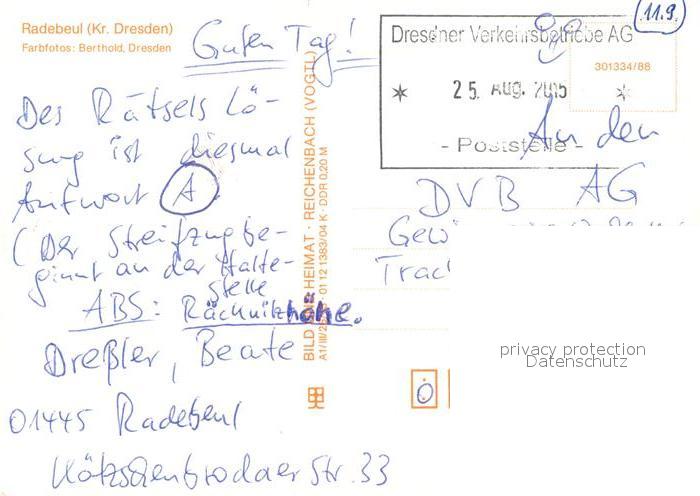 Radebeul (Kr. Dresden)
Farbfotos: Berthold, Dresden
Guten Tag!
Des Rätsels Lö-
sung ist diesmal
Antwort A
(Der Streifzug be-
ginnt an der Halte-
stelle
ABS: Räcknitzhöhe.
Dreßler, Beate
01445 Radebeul
Kötzschenbrodaer Str. 33
BILD UND HEIMAT · REICHENBACH (VOGTL)
01 12 1383/04 K · DDR 0,20 M
11.9.
Dresdner Verkehrsbetriebe AG
301334/88
* 25. Aug. 2015 *
- Poststelle -
An den
DVB AG
privacy protection
Datenschutz